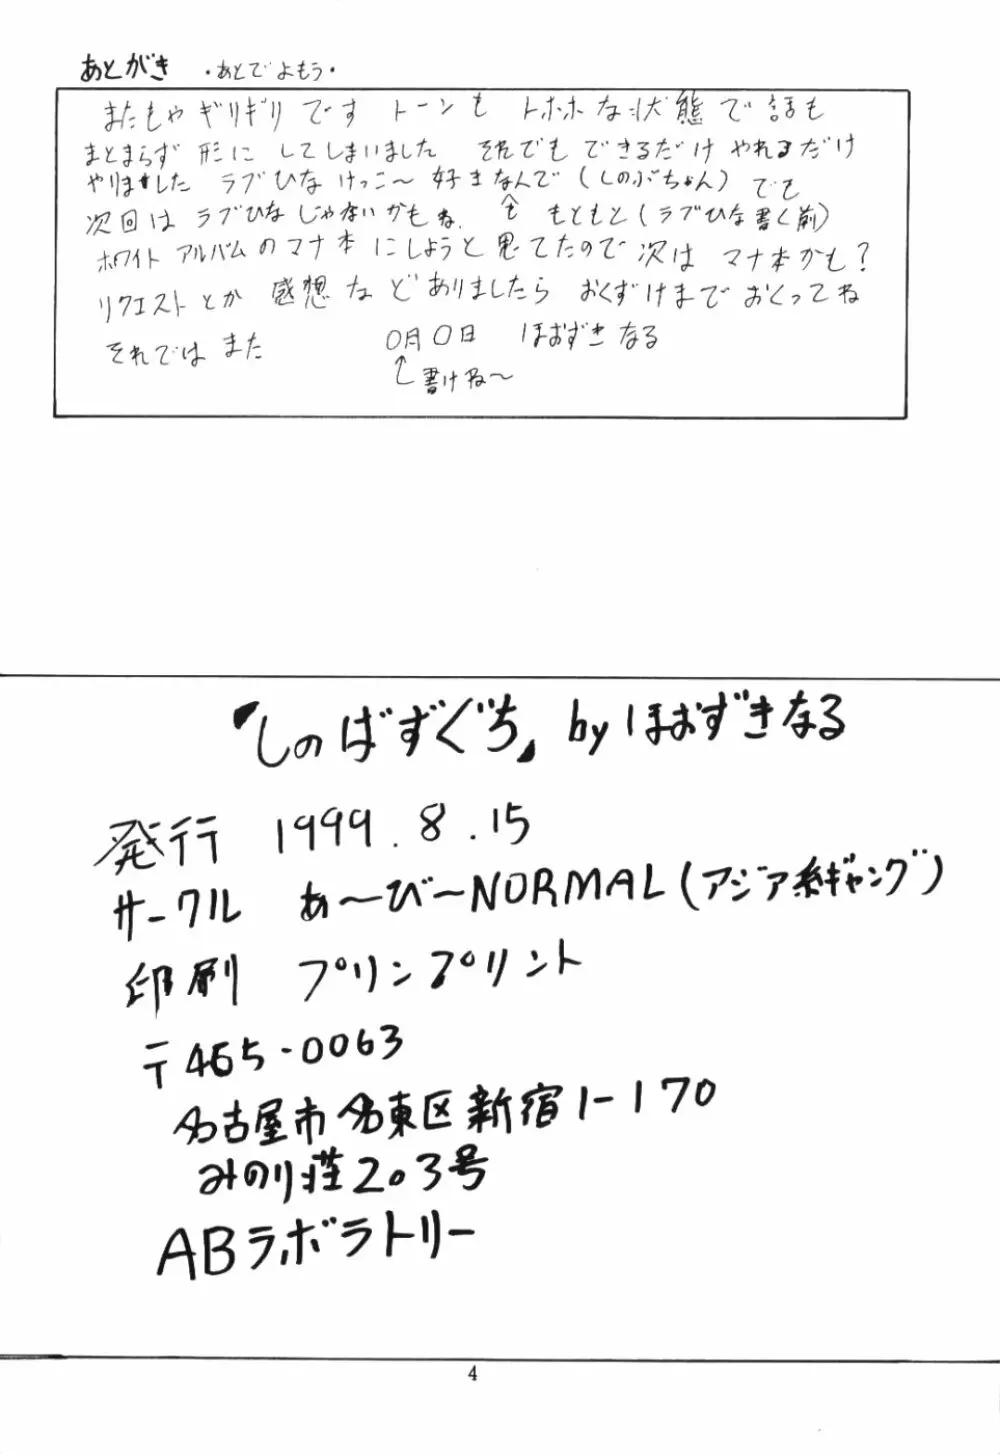 あとがき ・あとでよもう・
またもやギリギリです トーンも トホホな状態で話も
まとまらず 形に してしまいました それでも できるだけ やれるだけ
やりました ラブひな けっこ〜 好きなんで (しのぶちゃん) でも
次回は ラブひなじゃないかもね もともと (ラブひな書く前)
ホワイトアルバムのマナ本にしようと思てたので次は マナ本かも?
リクエストとか 感想など ありましたら おくずけまで おくってね
それでは また 0月0日 ほおずきなる
書けね〜
『しのばずぐち』 by ほおずきなる
発行 1999.8.15
サークル あ〜び〜NORMAL (アジア系ギャング)
印刷 プリンプリント
〒465-0063
名古屋市名東区新宿1-170
みのり荘203号
ABラボラトリー
4